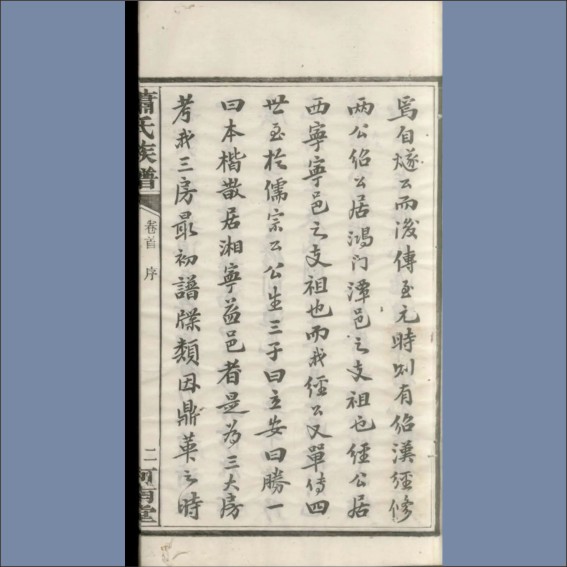 焉自燧公而後傳至元時則有紹漢經修
兩公紹公居鴻门潭邑之支祖也經公居
西寧寧邑之支祖也而我經公又單傳四
世至於儒宗公公生三子曰立安曰勝一
曰本楷散居湘寧益邑者是為三大房
考我三房最初譜牒類因鼎革之時
蕭氏族譜
卷首 序
二
河南堂